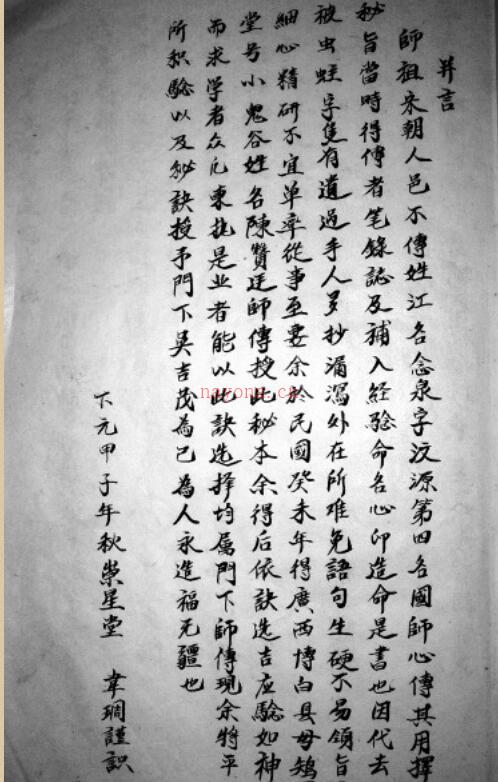 并言
師祖宋朝人邑不傳姓江名念泉字汶源第四名國師心傳其用擇
秘旨當時得傳者笔錄誌及補入經驗命名心印造命是書也因代去
被虫蛀字隻有遺過手人多抄漏瀉外在所难免語句生硬不易領旨
細心精研不宜单率從事至要余於民國癸未年得廣西博白县母鸡
堂号小鬼谷姓名陳贊廷師傳授此秘本余得后依訣选吉应驗如神
而求学者众凡東執是业者能以此訣选擇均属門下師傳現余將平
所积驗以及秘訣授予門下吴吉茂為己為人永造福无疆也
下元甲子年秋崇星堂 韋琱謹識
nayona.cn